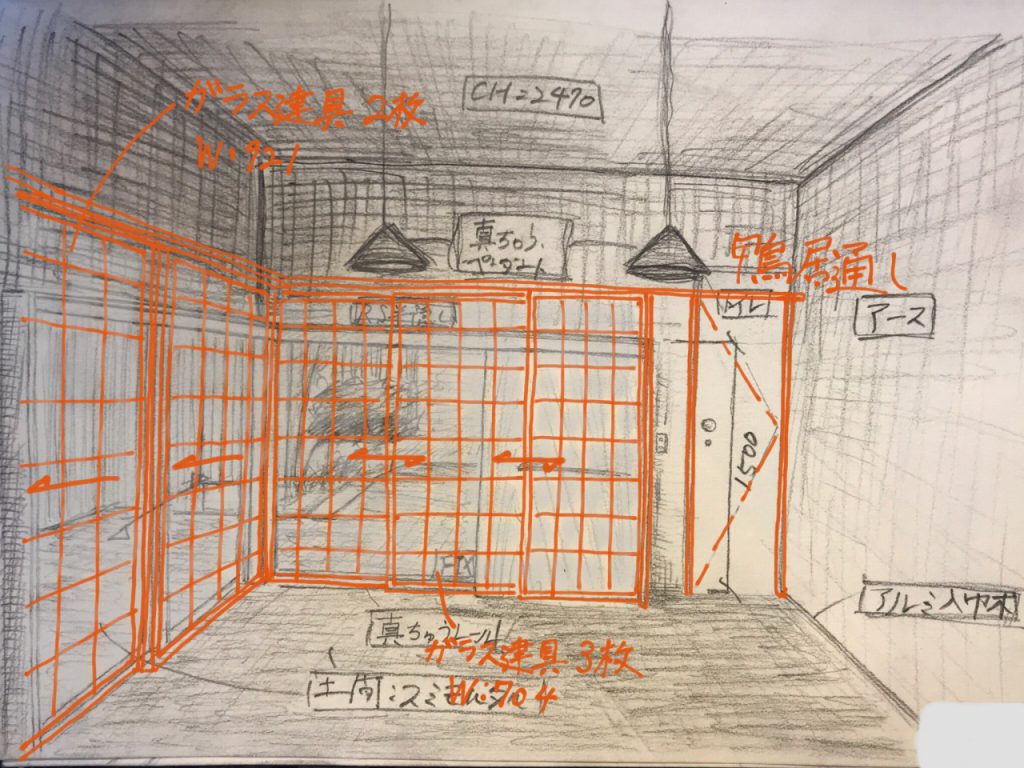 CH=2470
ガラス建具 2枚
W=921
真ちゅう
ペンダント
鴨居通し
アース
1500
FIX
真ちゅうレール
ガラス建具 3枚
W=704
土間:スミ
アルミ入巾木